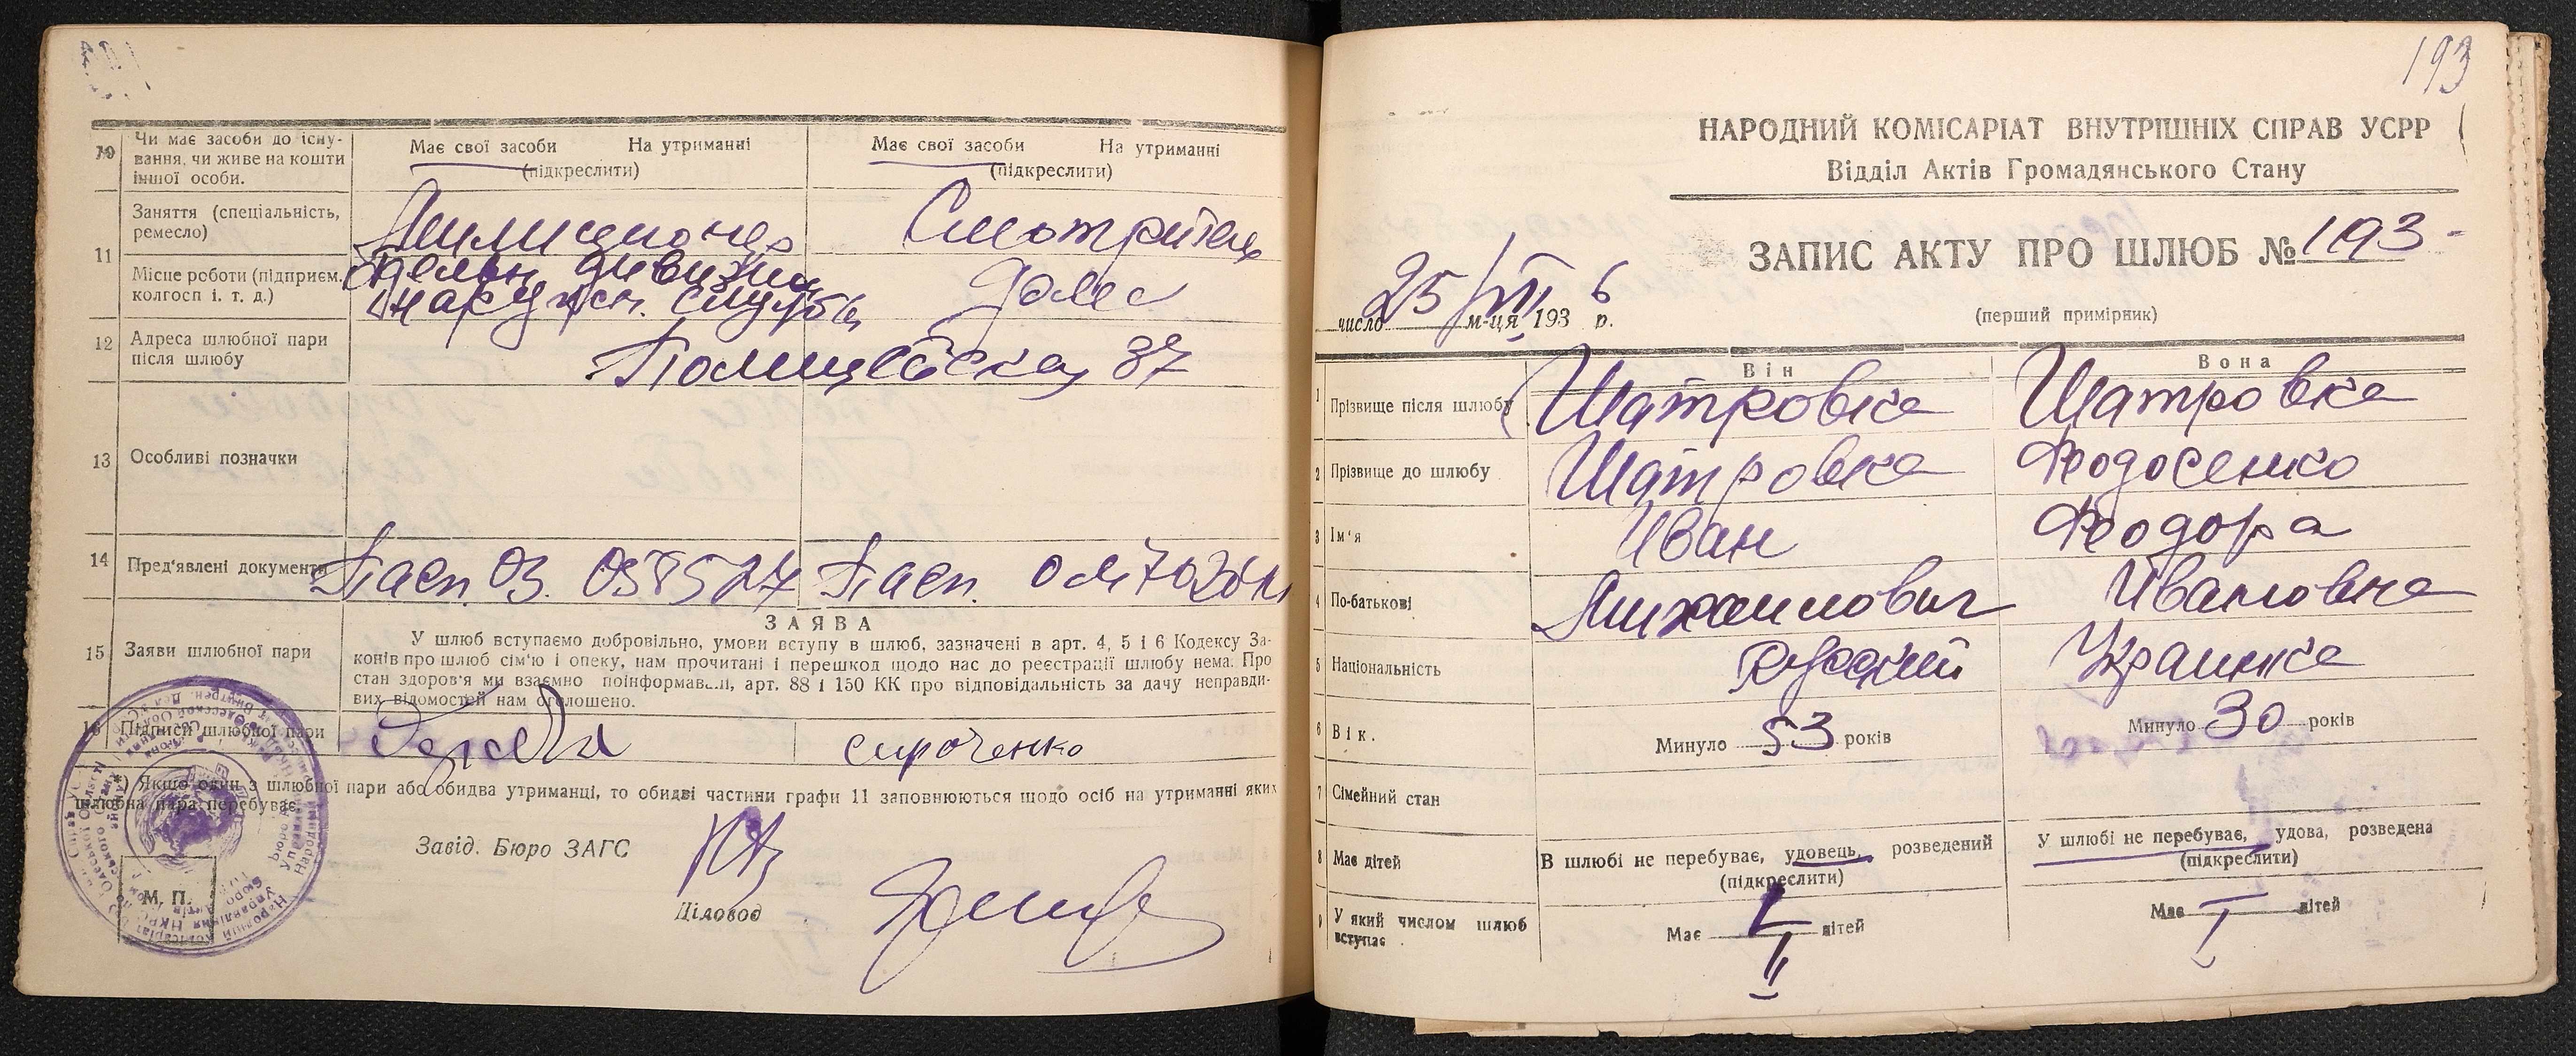 10 Чи має засоби до існу-
вання, чи живе на кошти
іншої особи.
Має свої засоби На утриманні
(підкреслити)
Має свої засоби На утриманні
(підкреслити)
11 Заняття (спеціальність,
ремесло)
Милиционер
Смотритель
Місце роботи (підприєм.
колгосп і. т. д.)
дивизии
наружн. службы
12 Адреса шлюбної пари
після шлюбу
37
13 Особливі позначки
14 Пред'явлені документи
Пасп. ОЗ. 058527
Пасп.
ЗАЯВА
15 Заяви шлюбної пари
У шлюб вступаємо добровільно, умови вступу в шлюб, зазначені в арт. 4, 5 і 6 Кодексу За-
конів про шлюб сім'ю і опеку, нам прочитані і перешкод щодо нас до реєстрації шлюбу нема. Про
стан здоров'я ми взаємно поінформовані, арт. 88 і 150 КК про відповідальність за дачу неправди-
вих відомостей нам оголошено.
16 Підписи шлюбної пари
Якщо один з шлюбної пари або обидва утриманці, то обидві частини графи 11 заповнюються щодо осіб на утриманні яких
шлюбна пара перебуває.
Завід. Бюро ЗАГС
Діловод
М. П.
193
НАРОДНИЙ КОМІСАРІАТ ВНУТРІШНІХ СПРАВ УСРР
Відділ Актів Громадянського Стану
ЗАПИС АКТУ ПРО ШЛЮБ № 193
(перший примірник)
число 25/VII м-ця 1936 р.
Він
Вона
1 Прізвище після шлюбу
Шатровка
Шатровка
2 Прізвище до шлюбу
Шатровка
Феодосенко
3 Ім'я
Иван
Феодора
4 По-батькові
Михаилович
Ивановна
5 Національність
Русский
Украинка
6 Вік.
Минуло 53 років
Минуло 30 років
7 Сімейний стан
8 Має дітей
В шлюбі не перебуває, удовець, розведений
(підкреслити)
У шлюбі не перебуває, удова, розведена
(підкреслити)
9 У який числом шлюб
вступає
Має I дітей
Має — дітей
II
I